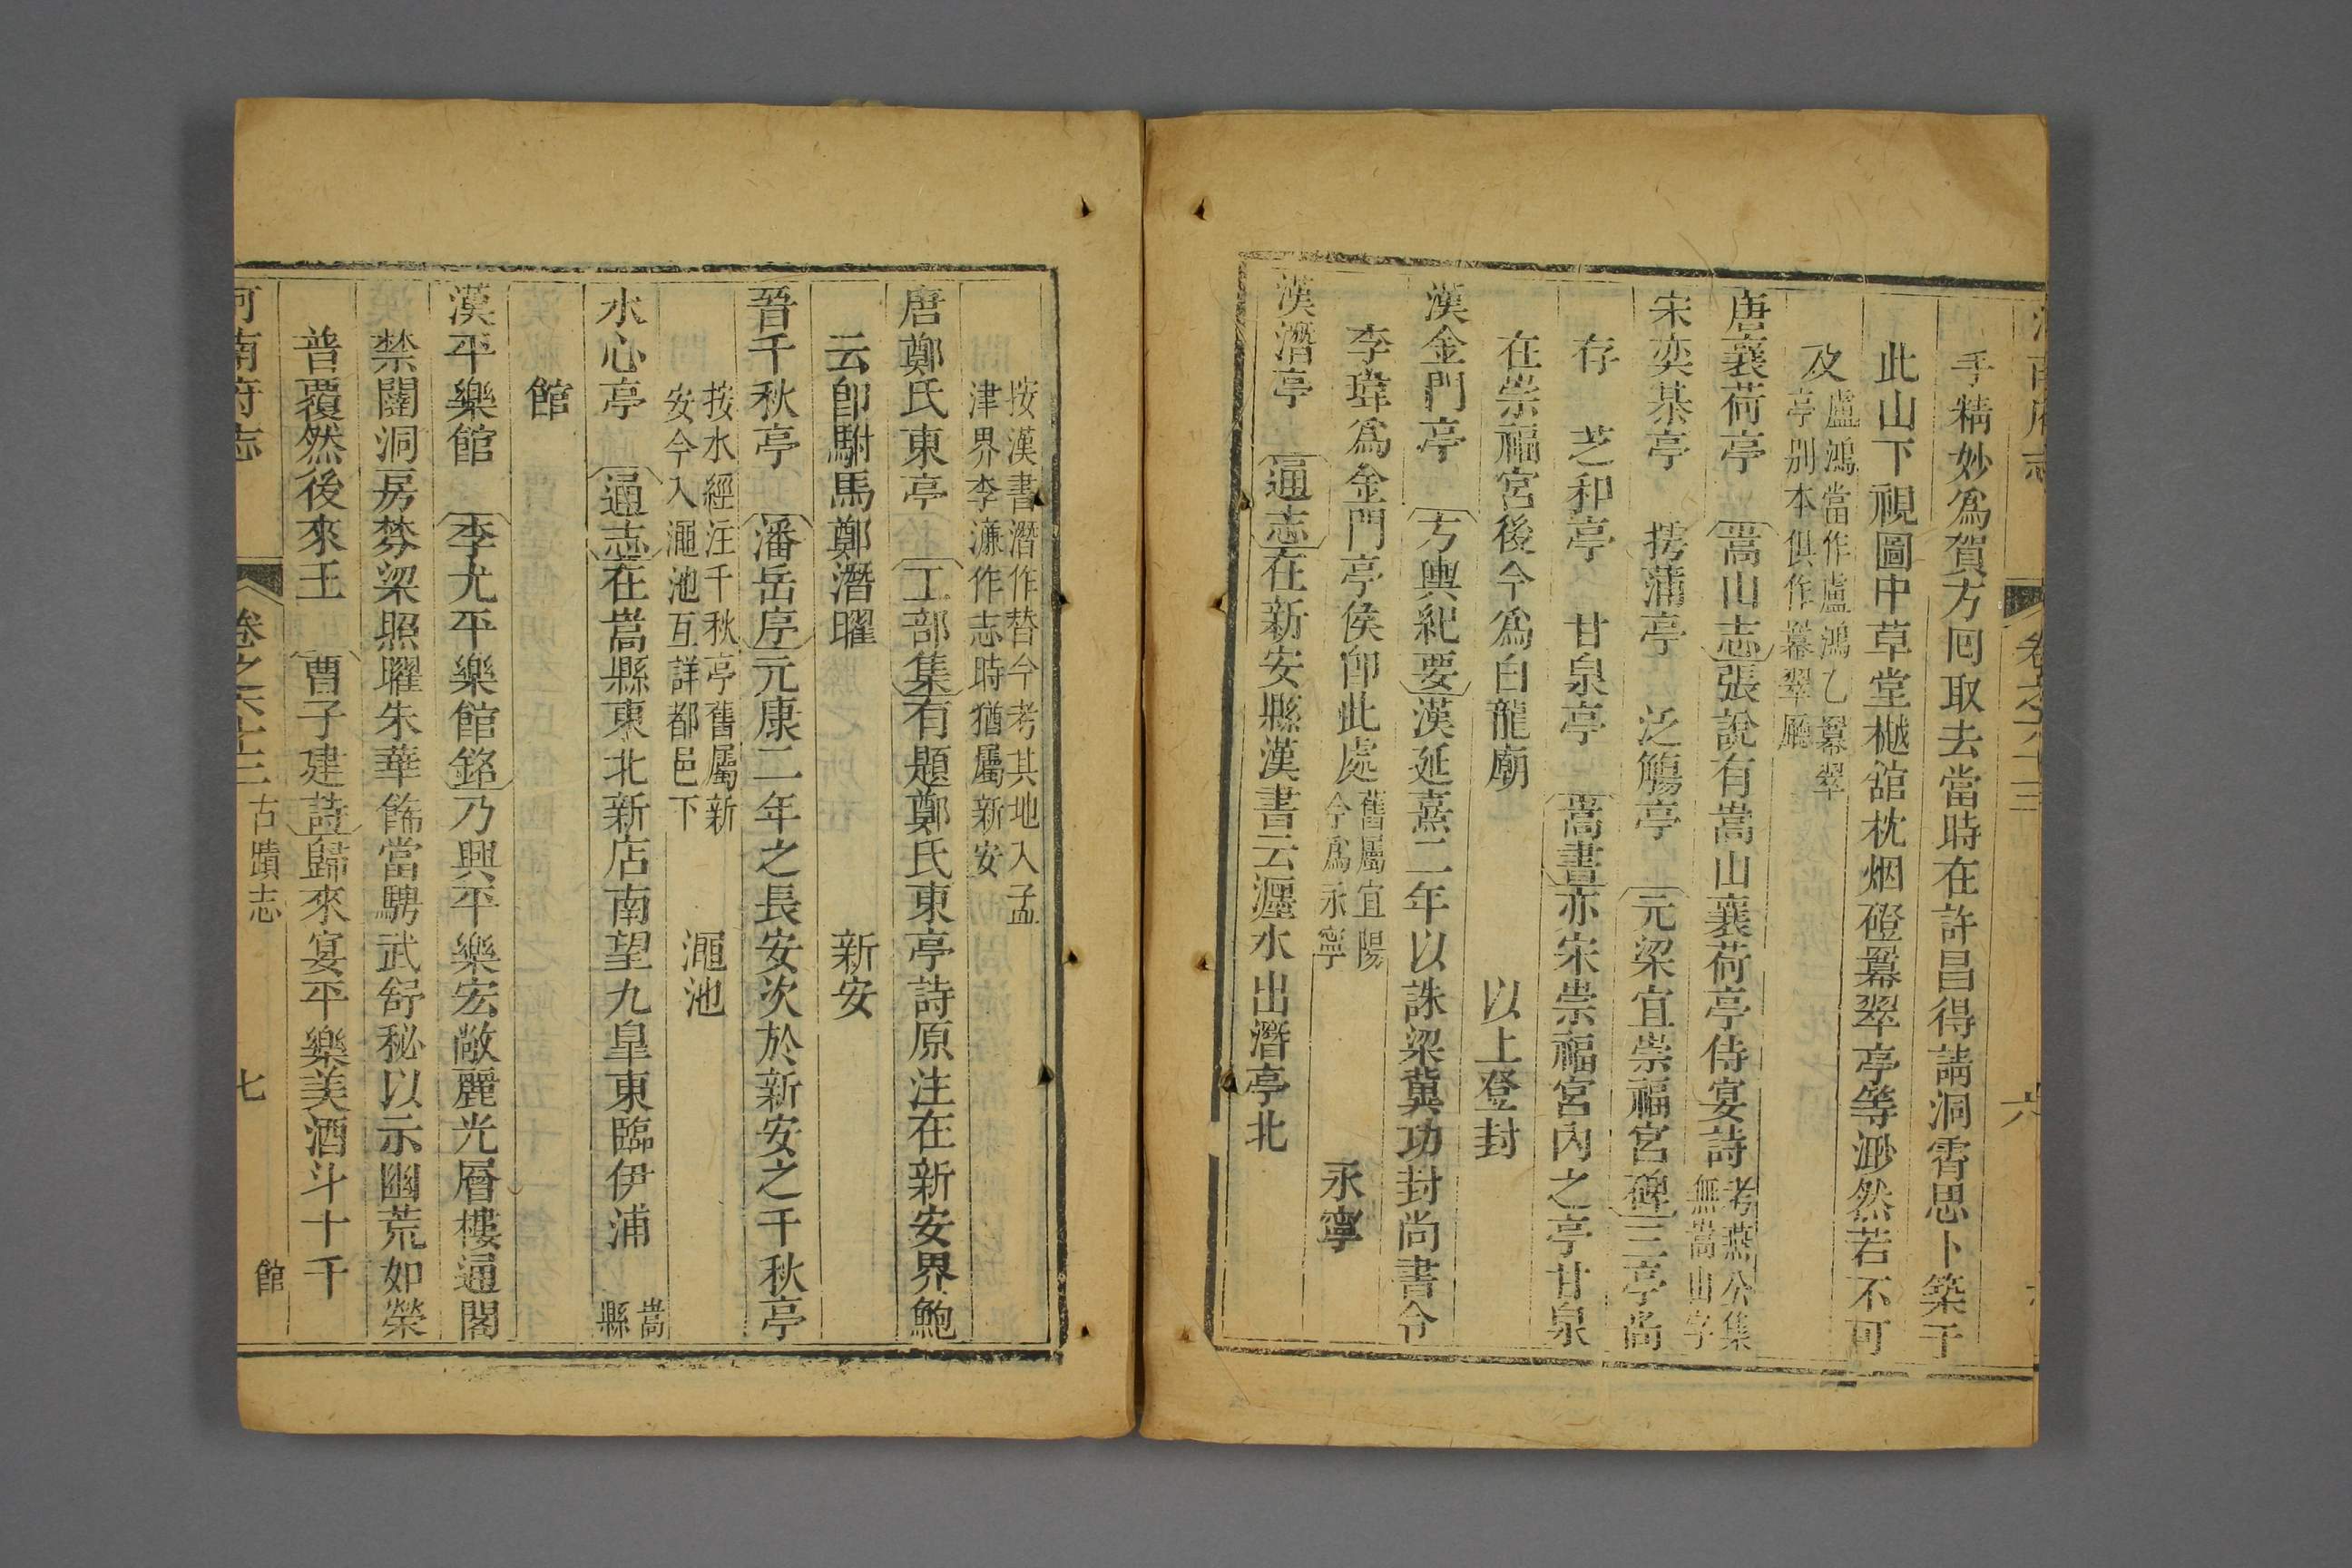 手精妙為賀方囘取去當時在許昌得請洞霄思卜築于
此山下視圖中草堂樾舘枕烟磴羃翠亭等渺然若不可
及盧鴻當作盧鴻乙羃翠
亭别本俱作羃翠廳
唐襄荷亭 嵩山志張說有嵩山襄荷亭侍宴詩考燕公集
無嵩山字
宋奕棊亭 摴蒲亭 泛觴亭 元梁宜崇福宮碑三亭尚
存 芝和亭 甘泉亭 嵩書亦宋崇福宮内之亭甘泉
在崇福宮後今為白龍廟 以上登封
漢金門亭 方輿紀要漢延熹二年以誅梁冀功封尚書令
李瑋為金門亭侯卽此處舊屬宜陽
今為永寧 永寧
漢潛亭 通志在新安縣漢書云瀍水出潛亭北
按漢書潛作替今考其地入孟
津界李濂作志時猶屬新安
唐鄭氏東亭 工部集有題鄭氏東亭詩原注在新安界鮑
云卽駙馬鄭潛曜 新安
晉千秋亭 潘岳序元康二年之長安次於新安之千秋亭
按水經注千秋亭舊屬新
安今入澠池互詳都邑下 澠池
水心亭 通志在嵩縣東北新店南望九皐東臨伊浦 嵩
縣
館
漢平樂館 李尤平樂館銘乃興平樂宏敞麗光層樓通閣
禁闥洞房棼梁照曜朱華飾當騁武舒秘以示幽荒如榮
普覆然後來王 曹子建詩歸來宴平樂美酒斗十千
河南府志 卷之六十三 古蹟志 七 館